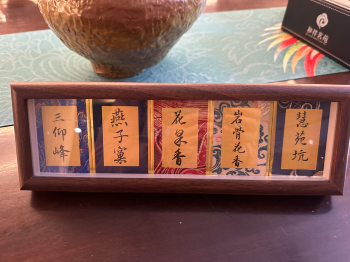 三仰峰
燕子窠
花果香
岩骨花香
慧苑坑